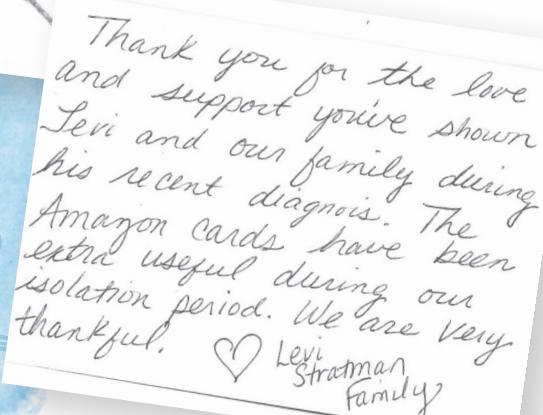 Thank you for the love
and support you've shown
Levi and our family during
his recent diagnois. The
Amazon cards have been
extra useful during our
isolation period. We are very
thankful.
Levi
Stratman
Family